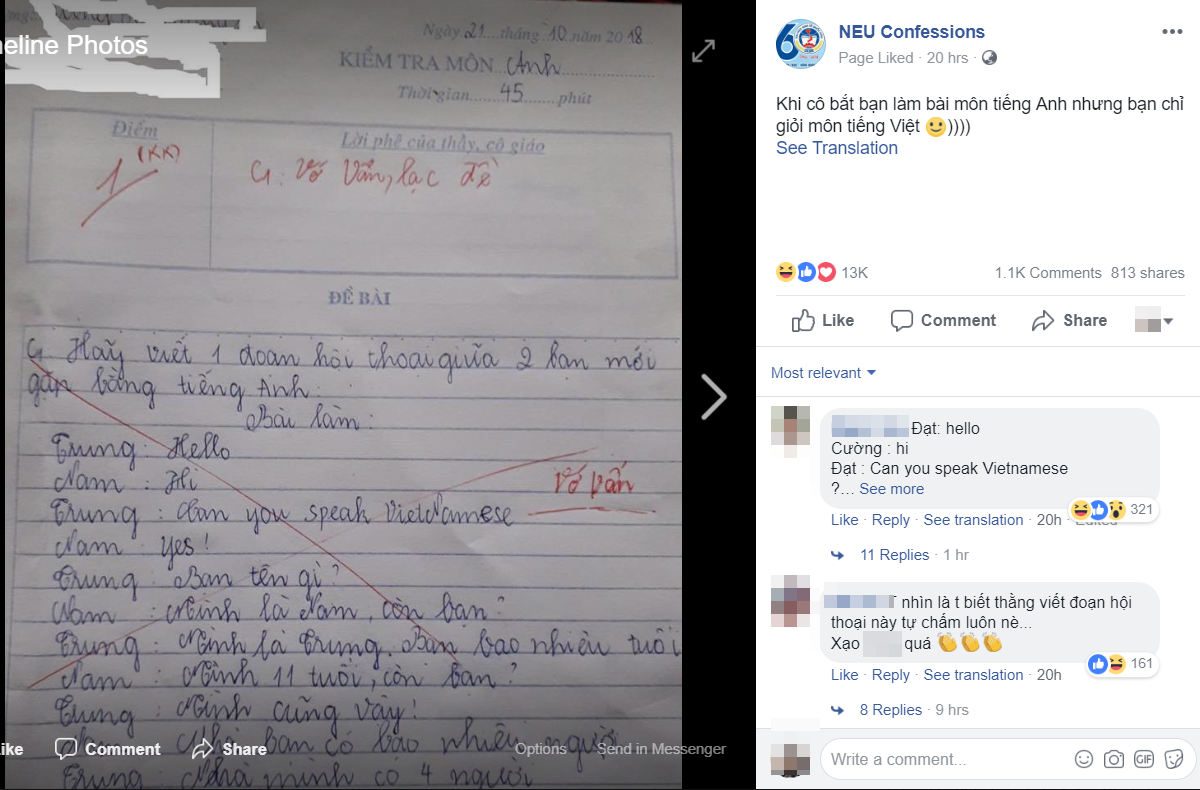 Timeline Photos
Ngày 21 tháng 10 năm 2018
KIỂM TRA MÔN Anh
Thời gian 45 phút
Điểm
1 (KK)
Lời phê của thầy, cô giáo
G: Vớ Vẩn, lạc đề
ĐỀ BÀI
G Hãy viết 1 đoạn hội thoại giữa 2 bạn mới
gặp bằng tiếng Anh:
Bài làm:
Trung: Hello
Nam : Hi
Trung: Can you speak VietNamese
Vớ vẩn
Nam : Yes!
Trung: Bạn tên gì?
Nam : Mình là Nam, còn bạn?
Trung: Mình là Trung. Bạn bao nhiêu tuổi
Nam : Mình 11 tuổi, còn bạn?
Trung: Mình cũng vậy!
Nhà bạn có bao nhiêu người
Trung: Nhà mình có 4 người
Like
Comment
Share
Options
Send in Messenger
NEU Confessions
Page Liked · 20 hrs ·
Khi cô bắt bạn làm bài môn tiếng Anh nhưng bạn chỉ
giỏi môn tiếng Việt 🙂))))
See Translation
13K
1.1K Comments 813 shares
Like Comment Share
Most relevant
Đạt: hello
Cường : hi
Đạt : Can you speak Vietnamese
?... See more
321
Like · Reply · See translation · 20h · Edited
11 Replies · 1 hr
nhìn là t biết thằng viết đoạn hội
thoại này tự chấm luôn nè...
Xạo quá 👏👏👏
161
Like · Reply · See translation · 20h
8 Replies · 9 hrs
Write a comment...
GIF